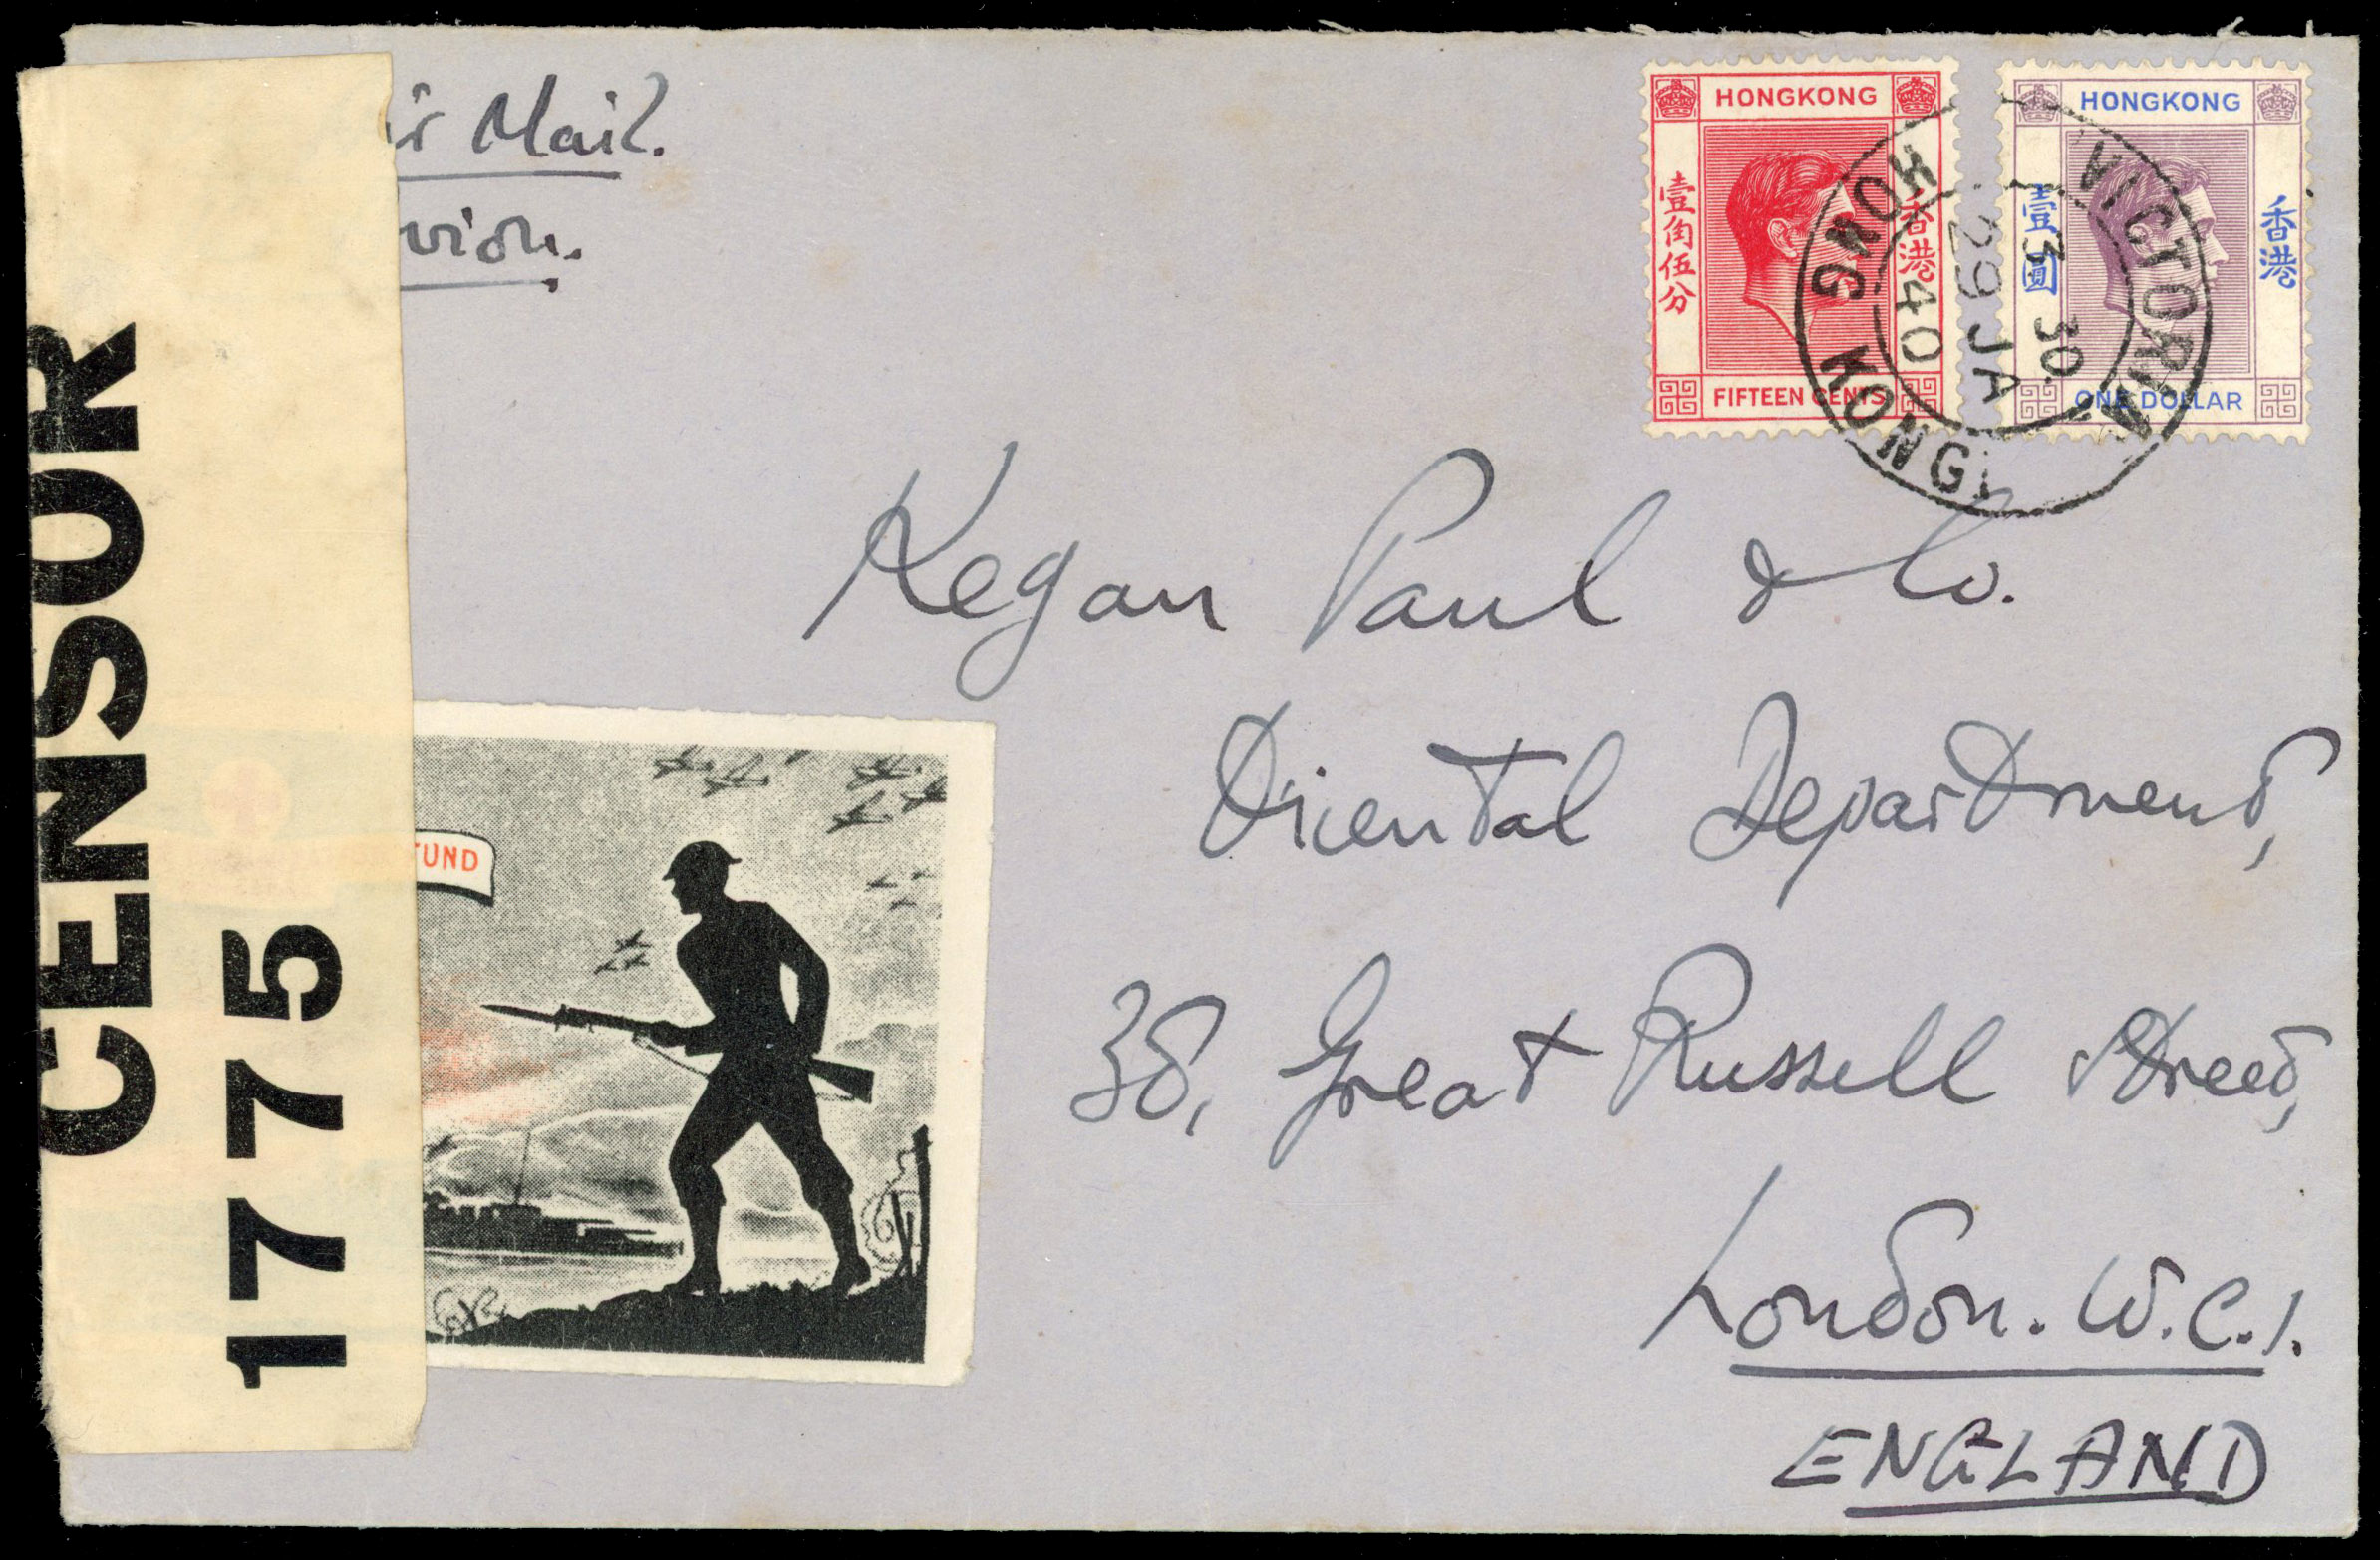 ir Mail.
vion.
CENSOR
1775
FUND
HONGKONG
壹角伍分
香港
FIFTEEN CENTS
HONGKONG
壹圓
香港
ONE DOLLAR
VICTORIA
HONG KONG
3 30
29 JA
40
Kegan Paul & Co.
Oriental Department,
38, Great Russell Street,
London. W.C.1.
ENGLAND